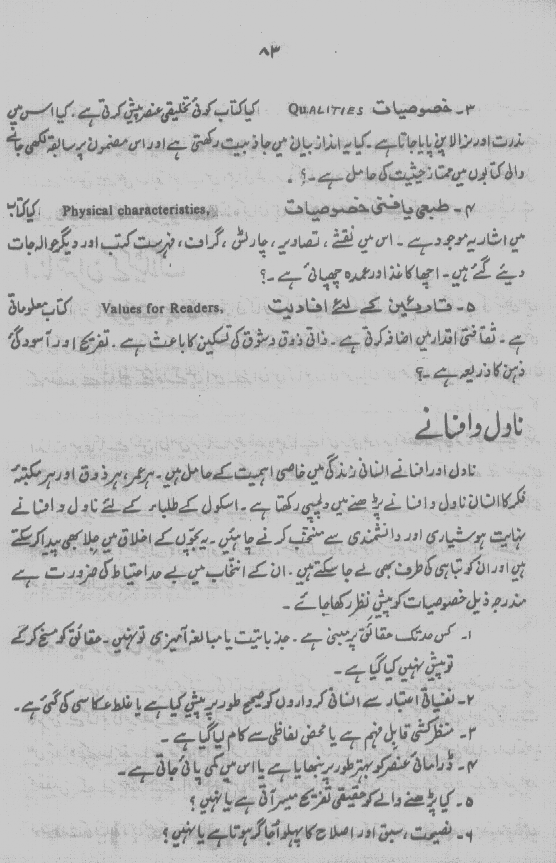 ۸۳
۳۔ خصوصیات QUALITIES کیا کتاب کوئی تخلیقی عنصر پیش کرتی ہے۔ کیا اس میں
ندرت اور نرالا پن پایا جاتا ہے۔ کیا یہ انداز بیان میں جاذبیت رکھتی ہے اور اس مضمون پر سابقہ لکھی جانے
والی کتابوں میں ممتاز حیثیت کی حامل ہے۔؟
۴۔ طبعی یافتنی خصوصیات Physical characteristics, کیا کتاب
میں اشاریہ موجود ہے۔ اس میں نقشے، تصاویر، چارٹس، گراف، فہرست کتب اور دیگر حوالہ جات
دیئے گئے ہیں۔ اچھا کاغذ اور عمدہ چھپائی ہے۔؟
۵۔ قارئین کے لئے افادیت Values for Readers, کتاب معلوماتی
ہے۔ ثقافتی اقدار میں اضافہ کرتی ہے۔ ذاتی ذوق و شوق کی تسکین کا باعث ہے۔ تفریح اور آسودگیٔ
ذہن کا ذریعہ ہے۔؟
ناول و افسانے
ناول اور افسانے انسانی زندگی میں خاصی اہمیت کے حامل ہیں۔ ہر عمر، ہر ذوق اور ہر مکتبۂ
فکر کا انسان ناول و افسانے پڑھنے میں دلچسپی رکھتا ہے۔ اسکول کے طلباء کے لئے ناول و افسانے
نہایت ہوشیاری اور دانشمندی سے منتخب کرنے چاہئیں۔ یہ بچوں کے اخلاق میں جلا بھی پیدا کر سکتے
ہیں اور ان کو تباہی کی طرف بھی لے جا سکتے ہیں۔ ان کے انتخاب میں بے حد احتیاط کی ضرورت ہے
مندرجہ ذیل خصوصیات کو پیش نظر رکھا جائے۔
۱۔ کس حد تک حقائق پر مبنی ہے۔ جذباتیت یا مبالغہ آمیزی تو نہیں۔ حقائق کو مسخ کر کے
تو پیش نہیں کیا گیا ہے۔
۲۔ نفسیاتی اعتبار سے انسانی کرداروں کو صحیح طور پر پیش کیا ہے یا غلط عکاسی کی گئی ہے۔
۳۔ منظر کشی قابل فہم ہے یا محض لفاظی سے کام لیا گیا ہے۔
۴۔ ڈرامائی عنصر کو بہتر طور پر نبھایا ہے یا اس میں کمی پائی جاتی ہے۔
۵۔ کیا پڑھنے والے کو حقیقی تفریح میسر آتی ہے یا نہیں؟
۶۔ نصیحت، سبق اور اصلاح کا پہلو اُجاگر ہوتا ہے یا نہیں؟